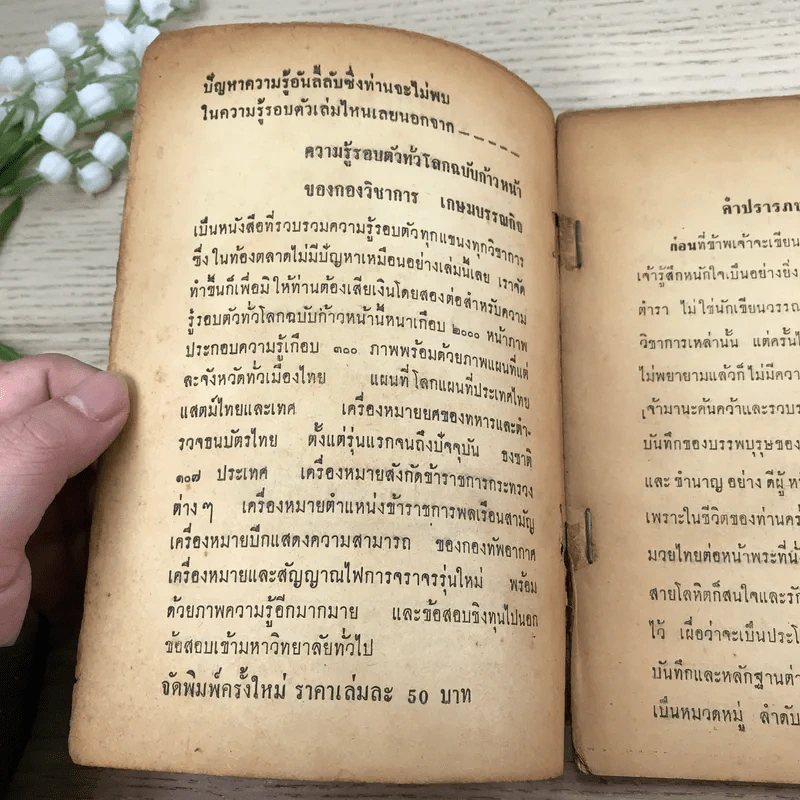 ปัญหาความรู้อันลี้ลับซึ่งท่านจะไม่พบ
ในความรู้รอบตัวเล่มไหนเลยนอกจาก_ _ _ _ _
ความรู้รอบตัวทั่วโลกฉบับก้าวหน้า
ของกองวิชาการ เกษมบรรณกิจ
เป็นหนังสือที่รวบรวมความรู้รอบตัวทุกแขนงทุกวิชาการ
ซึ่งในท้องตลาดไม่มีปัญหาเหมือนอย่างเล่มนี้เลย เราจัด
ทำขึ้นก็เพื่อมิให้ท่านต้องเสียเงินโดยสองต่อสำหรับความ
รู้รอบตัวทั่วโลกฉบับก้าวหน้านี้หนาเกือบ ๒๐๐๐ หน้าภาพ
ประกอบความรู้เกือบ ๓๐๐ ภาพพร้อมด้วยภาพแผนที่แต่
ละจังหวัดทั่วเมืองไทย แผนที่โลกแผนที่ประเทศไทย
แสตมป์ไทยและเทศ เครื่องหมายยศของทหารและตำ-
รวจธนบัตรไทย ตั้งแต่รุ่นแรกจนถึงปัจจุบัน ธงชาติ
๑๐๗ ประเทศ เครื่องหมายสังกัดข้าราชการกระทรวง
ต่างๆ เครื่องหมายตำแหน่งข้าราชการพลเรือนสามัญ
เครื่องหมายปีกแสดงความสามารถ ของกองทัพอากาศ
เครื่องหมายและสัญญาณไฟการจราจรรุ่นใหม่ พร้อม
ด้วยภาพความรู้อีกมากมาย และข้อสอบชิงทุนไปนอก
ข้อสอบเข้ามหาวิทยาลัยทั่วไป
จัดพิมพ์ครั้งใหม่ ราคาเล่มละ 50 บาท
คำปรารภ
ก่อนที่ข้าพเจ้าจะเขียน
เจ้ารู้สึกหนักใจเป็นอย่างยิ่ง
ตำรา ไม่ใช่นักเขียนวรรณ
วิชาการเหล่านั้น แต่ครั้น
ไม่พยายามแล้วก็ไม่มีความ
เจ้ามานะค้นคว้าและรวบร
บันทึกของบรรพบุรุษของ
และ ชำนาญ อย่าง ดีผู้
เพราะในชีวิตของท่านครั้
มวยไทยต่อหน้าพระที่นั่
สายโลหิตก็สนใจและรัก
ไว้ เผื่อว่าจะเป็นประโ
บันทึกและหลักฐานต่า
เป็นหมวดหมู่ ลำดับ